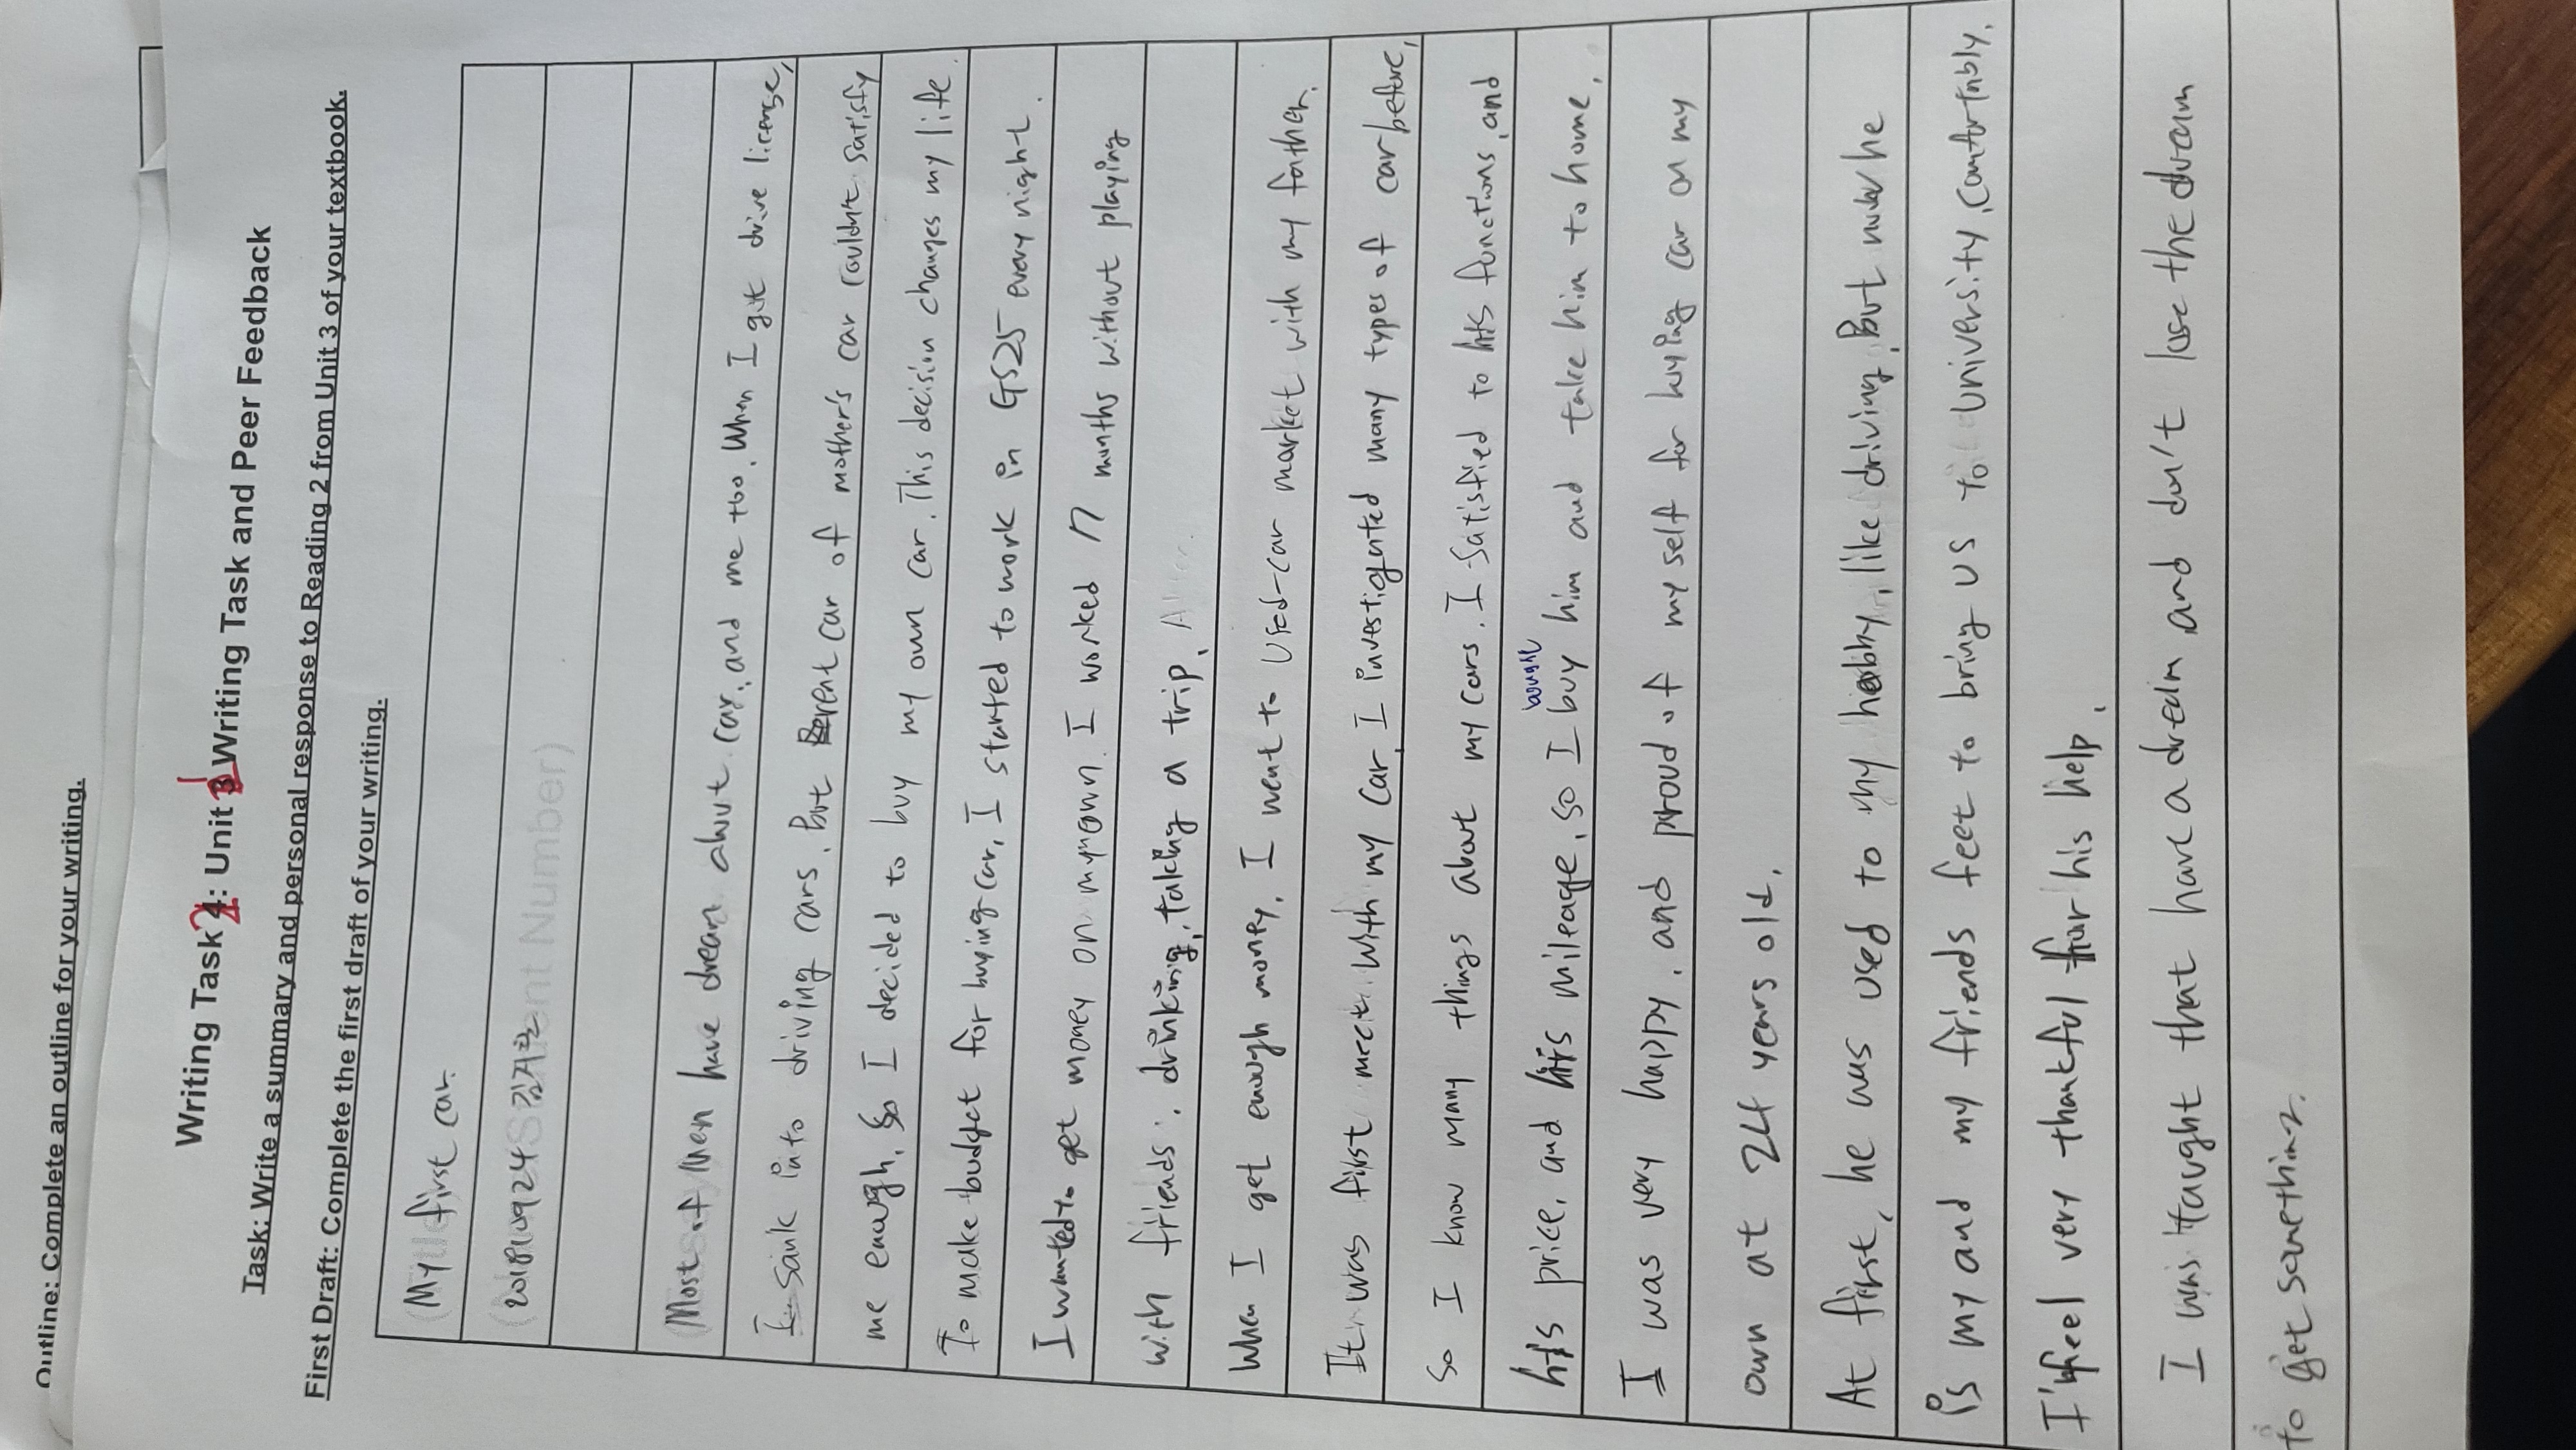 Outline: Complete an outline for your writing.
Writing Task 2: Unit 1 Writing Task and Peer Feedback
Task: Write a summary and personal response to Reading 2 from Unit 3 of your textbook.
First Draft: Complete the first draft of your writing.
My first car.
201810924 김지환
Student Number)
Most of Men have dream about car, and me too. When I got drive license,
I sank into driving cars. But rent car of mother's car couldn't satisfy
me enough. So I decided to buy my own car. This decision changes my life.
To make budget for buying car, I started to work in GS25 every night.
I wanted to get money on my own. I worked 17 months without playing
with friends, drinking, taking a trip.
When I get enough money, I went to used-car market with my father.
It was first meet with my car, I investigated many types of car before,
so I know many things about my cars. I satisfied to his functions, and
his price, and his mileage, so I buy bought him and take him to home.
I was very happy, and proud of my self for buying car on my
own at 24 years old.
At first, he was used to my hobby, like driving. But now he
is my and my friends feet to bring us to university, comfortably.
I feel very thankful for his help.
I was taught that have a dream and don't lose the dream
to get something.